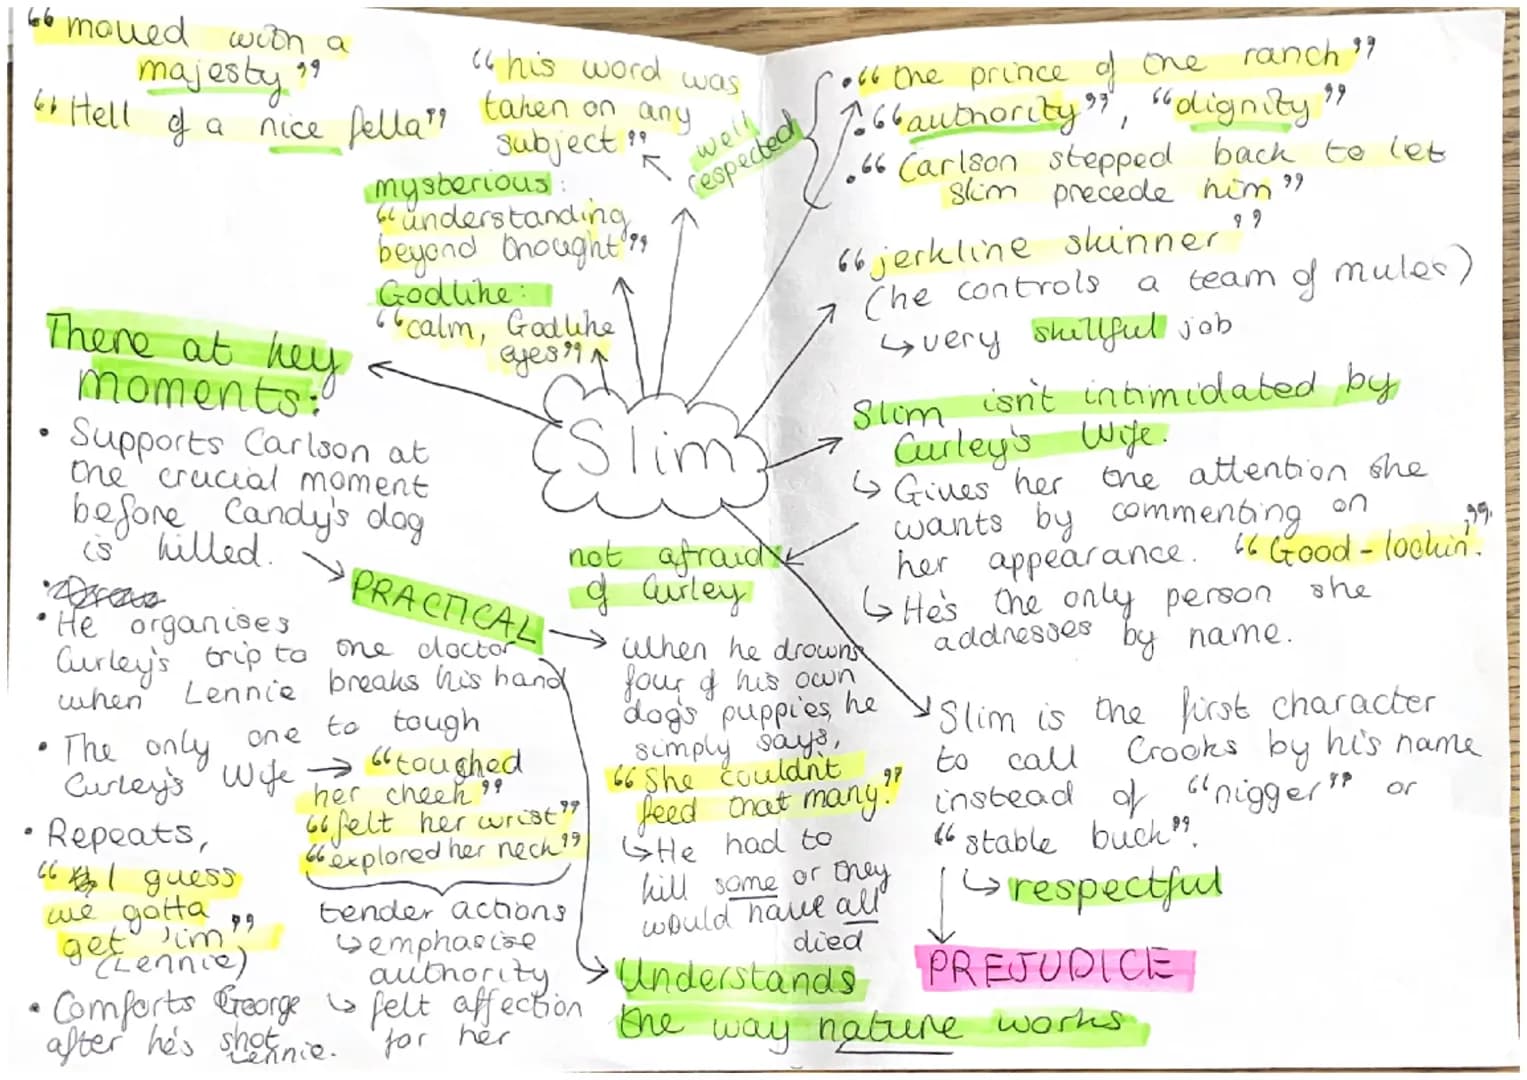 “moved with a
majesty”
“Hell of a nice fella”
“his word was
taken on any
subject”
well
respected
mysterious:
“understanding
beyond thought”
Godlike:
“calm, Godlike
eyes”
• “the prince of the ranch”
• “authority”, “dignity”
• “Carlson stepped back to let
Slim precede him”
“jerkline skinner”
(he controls a team of mules)
↳ very skillful job
Slim
Slim isn't intimidated by
Curley's Wife.
↳ Gives her the attention she
wants by commenting on
her appearance. “Good-lookin'”.
↳ He's the only person she
addresses by name.
There at key
moments:
• Supports Carlson at
the crucial moment
before Candy's dog
is killed.
PRACTICAL
• He organises
Curley's trip to the doctor
when Lennie breaks his hand
• The only one to tough
Curley's Wife → “touched
her cheek”
“felt her wrist”
“explored her neck”
tender actions
↳ emphasise
authority
↳ felt affection
for her
• Repeats,
“I guess
we gotta
get 'im”
(Lennie)
• Comforts George
after he's shot
Lennie.
not afraid
of Curley
when he drowns
four of his own
dogs puppies, he
simply says,
“She couldn't
feed that many.”
↳ He had to
kill some or they
would have all
died
Understands
the way nature works
Slim is the first character
to call Crooks by his name
instead of “nigger” or
“stable buck”.
↳ respectful
PREJUDICE